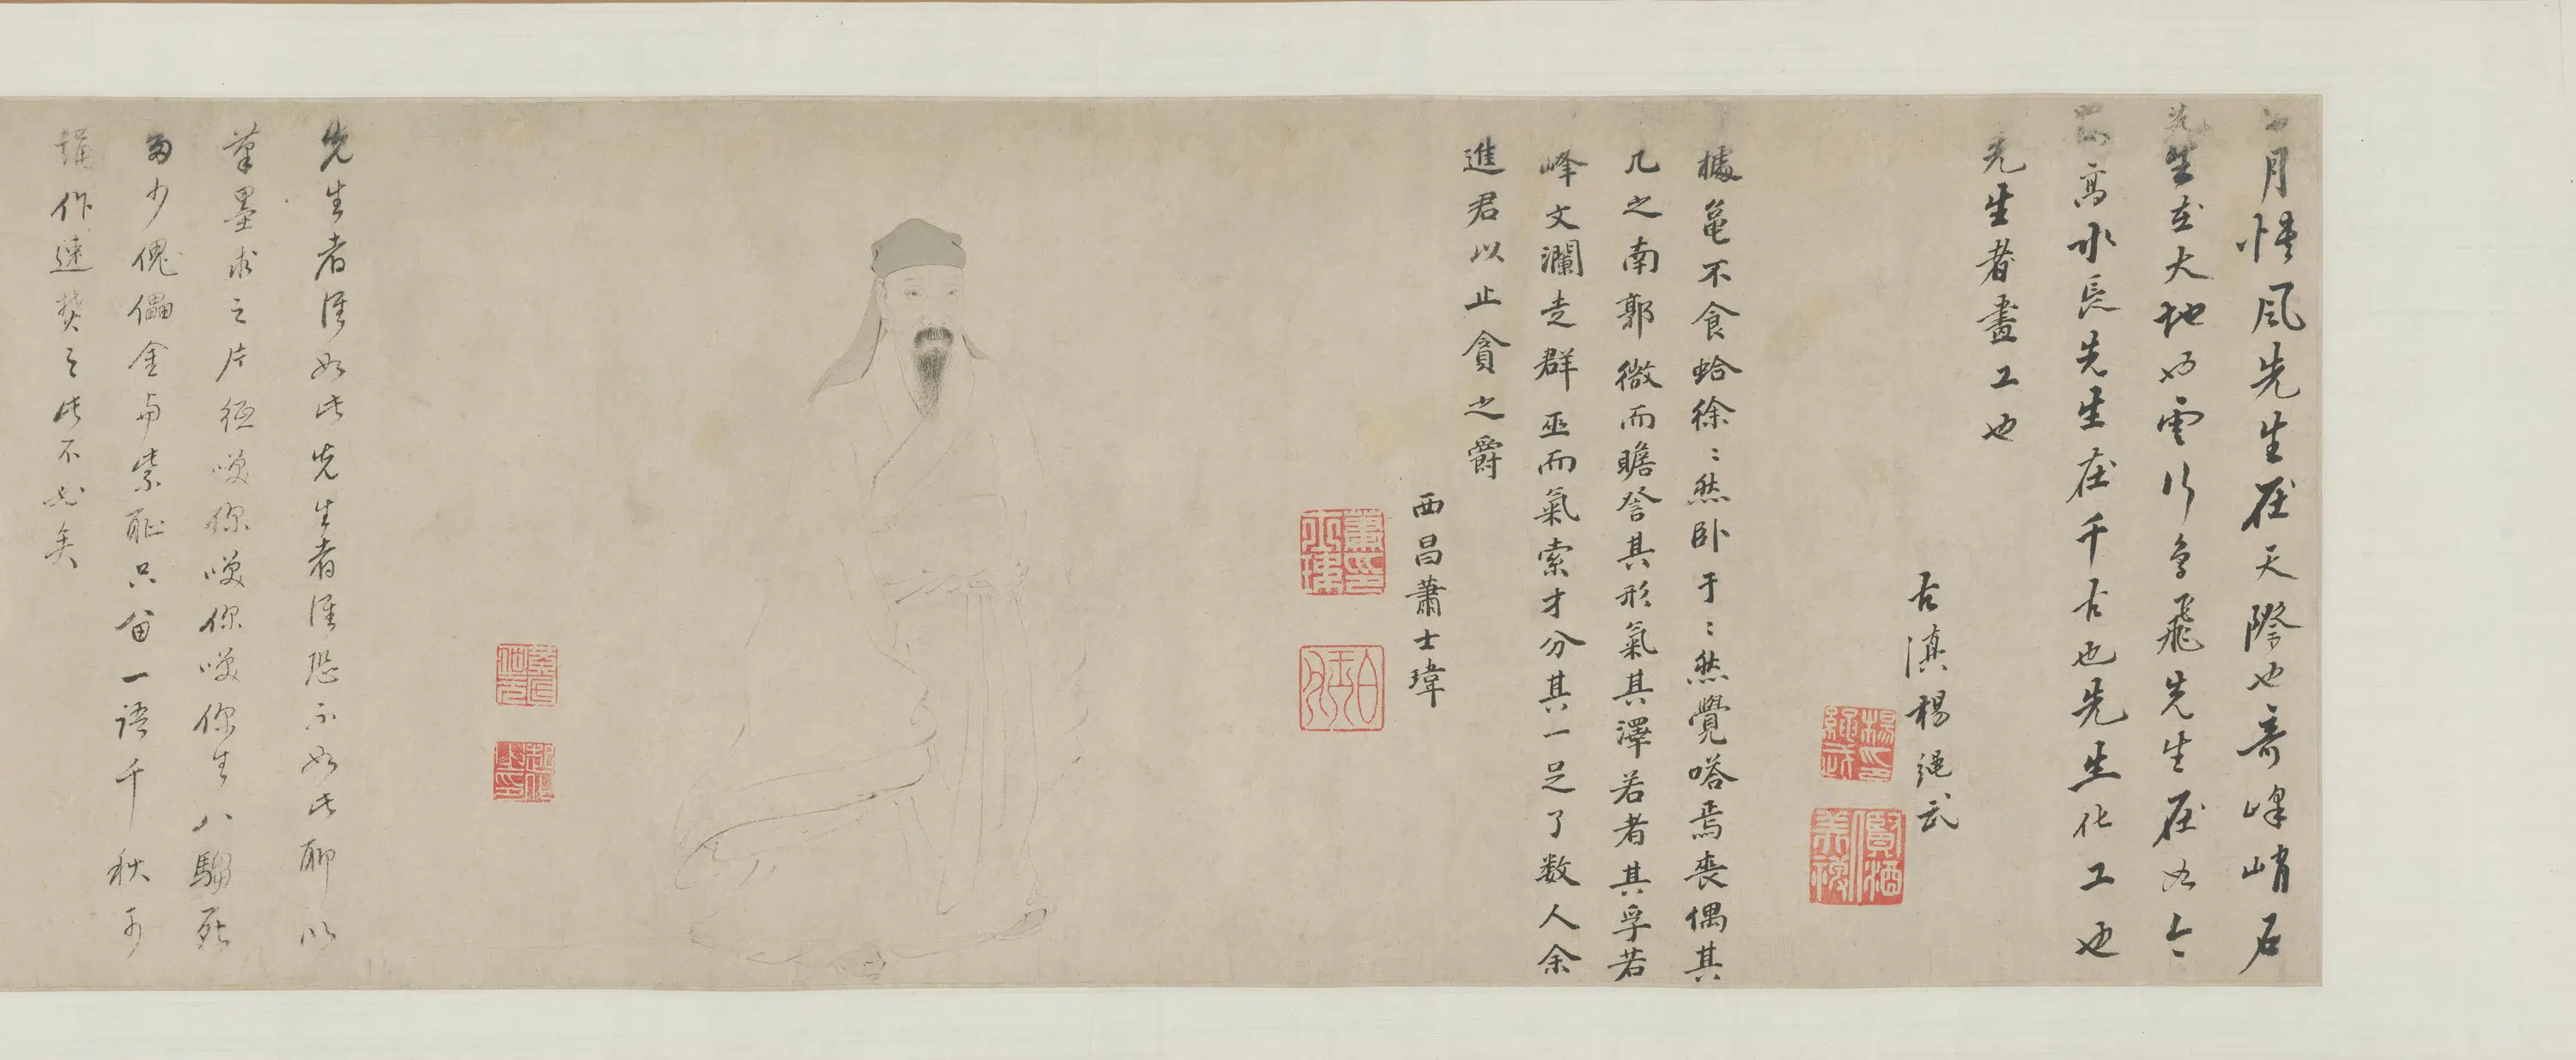 月悟風先生在天際也奇峰峭石
先生在大地也雲行鳥飛先生在古今
高水長先生在千古也先生化工也
先生者畫工也
古滇楊繩武
楊印繩武
據龜不食蛤徐:然卧于:然覺嗒焉喪偶其
几之南郭微而瞻詧其形氣其澤若者其孚若
峰文瀾走群巫而氣索才分其一足了数人余
進君以止貪之爵
西昌蕭士瑋
蕭印士瑋
伯玉
先生者誰如此先生者誰恐不如此聊以
筆墨求之片紙嘆你嘆你嘆你生八騶死
多少傀儡金與紫耻只留一語千秋可
誦作速焚之此不必矣